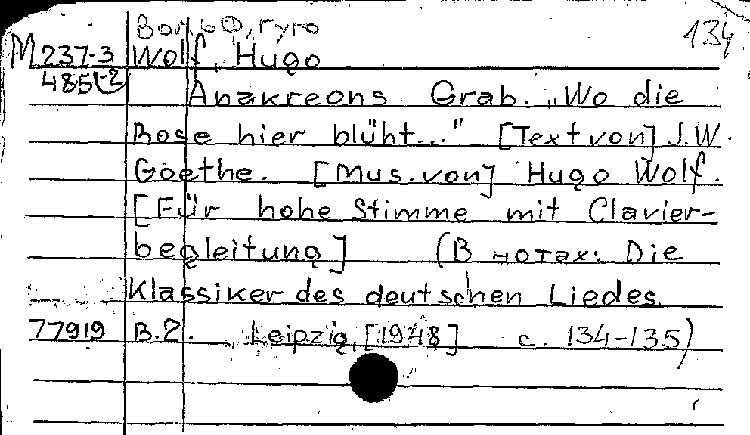 Вольф, Гуго 134
M 237-3 Wolf, Hugo
485(-2 Anakreons Grab. „Wo die
Rose hier blüht..." [Text von] J.W.
Goethe. [Mus. von] Hugo Wolf.
[Für hohe Stimme mit Clavier-
begleitung] (В нотах: Die
Klassiker des deutschen Liedes.
77919 B.2. Leipzig, [1948] с. 134-135)